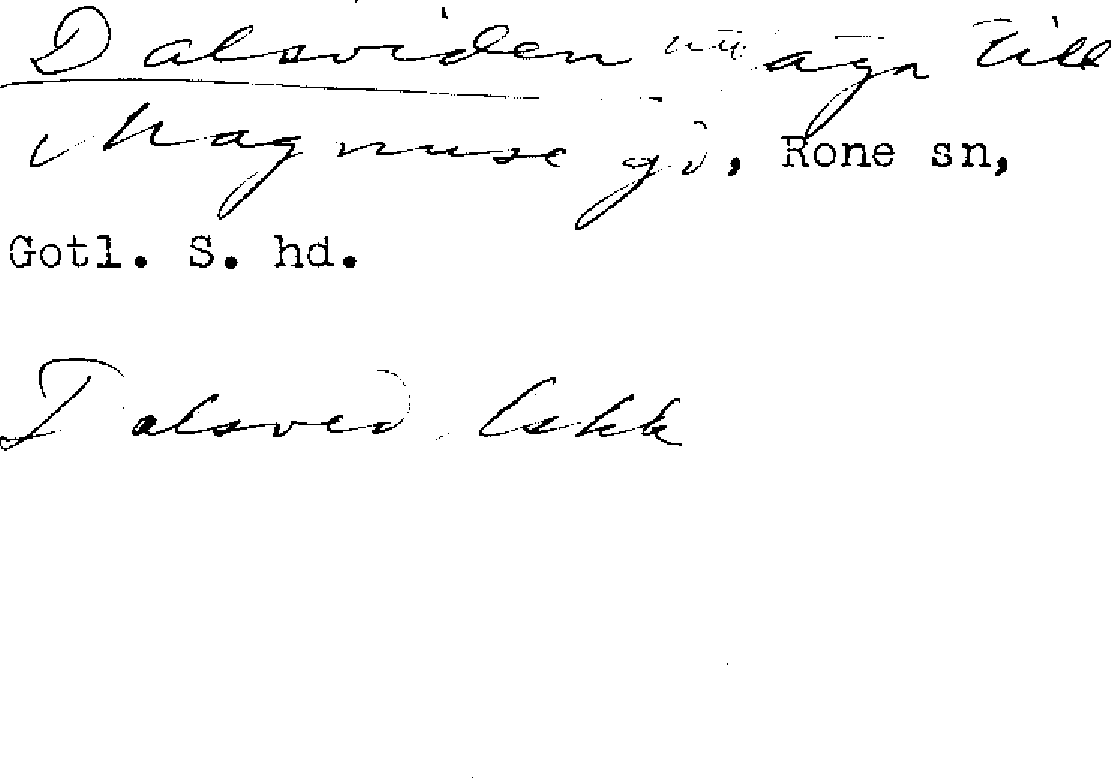 Dalsviden äga till
Magnuse gd, Rone sn,
Gotl. S. hd.
Dalsved Cskk